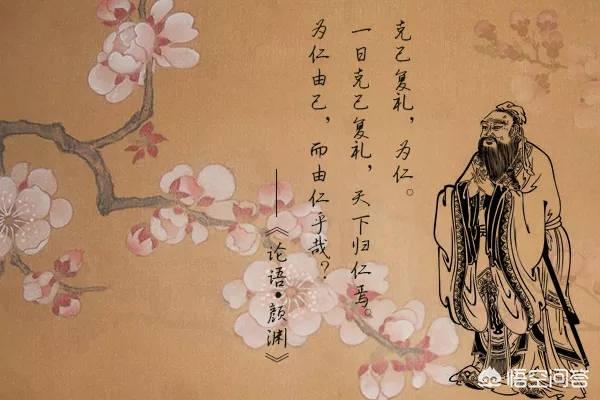 克己复礼，为仁。
一日克己复礼，天下归仁焉。
为仁由己，而由仁乎哉？
——《论语·颜渊》
悟空问答